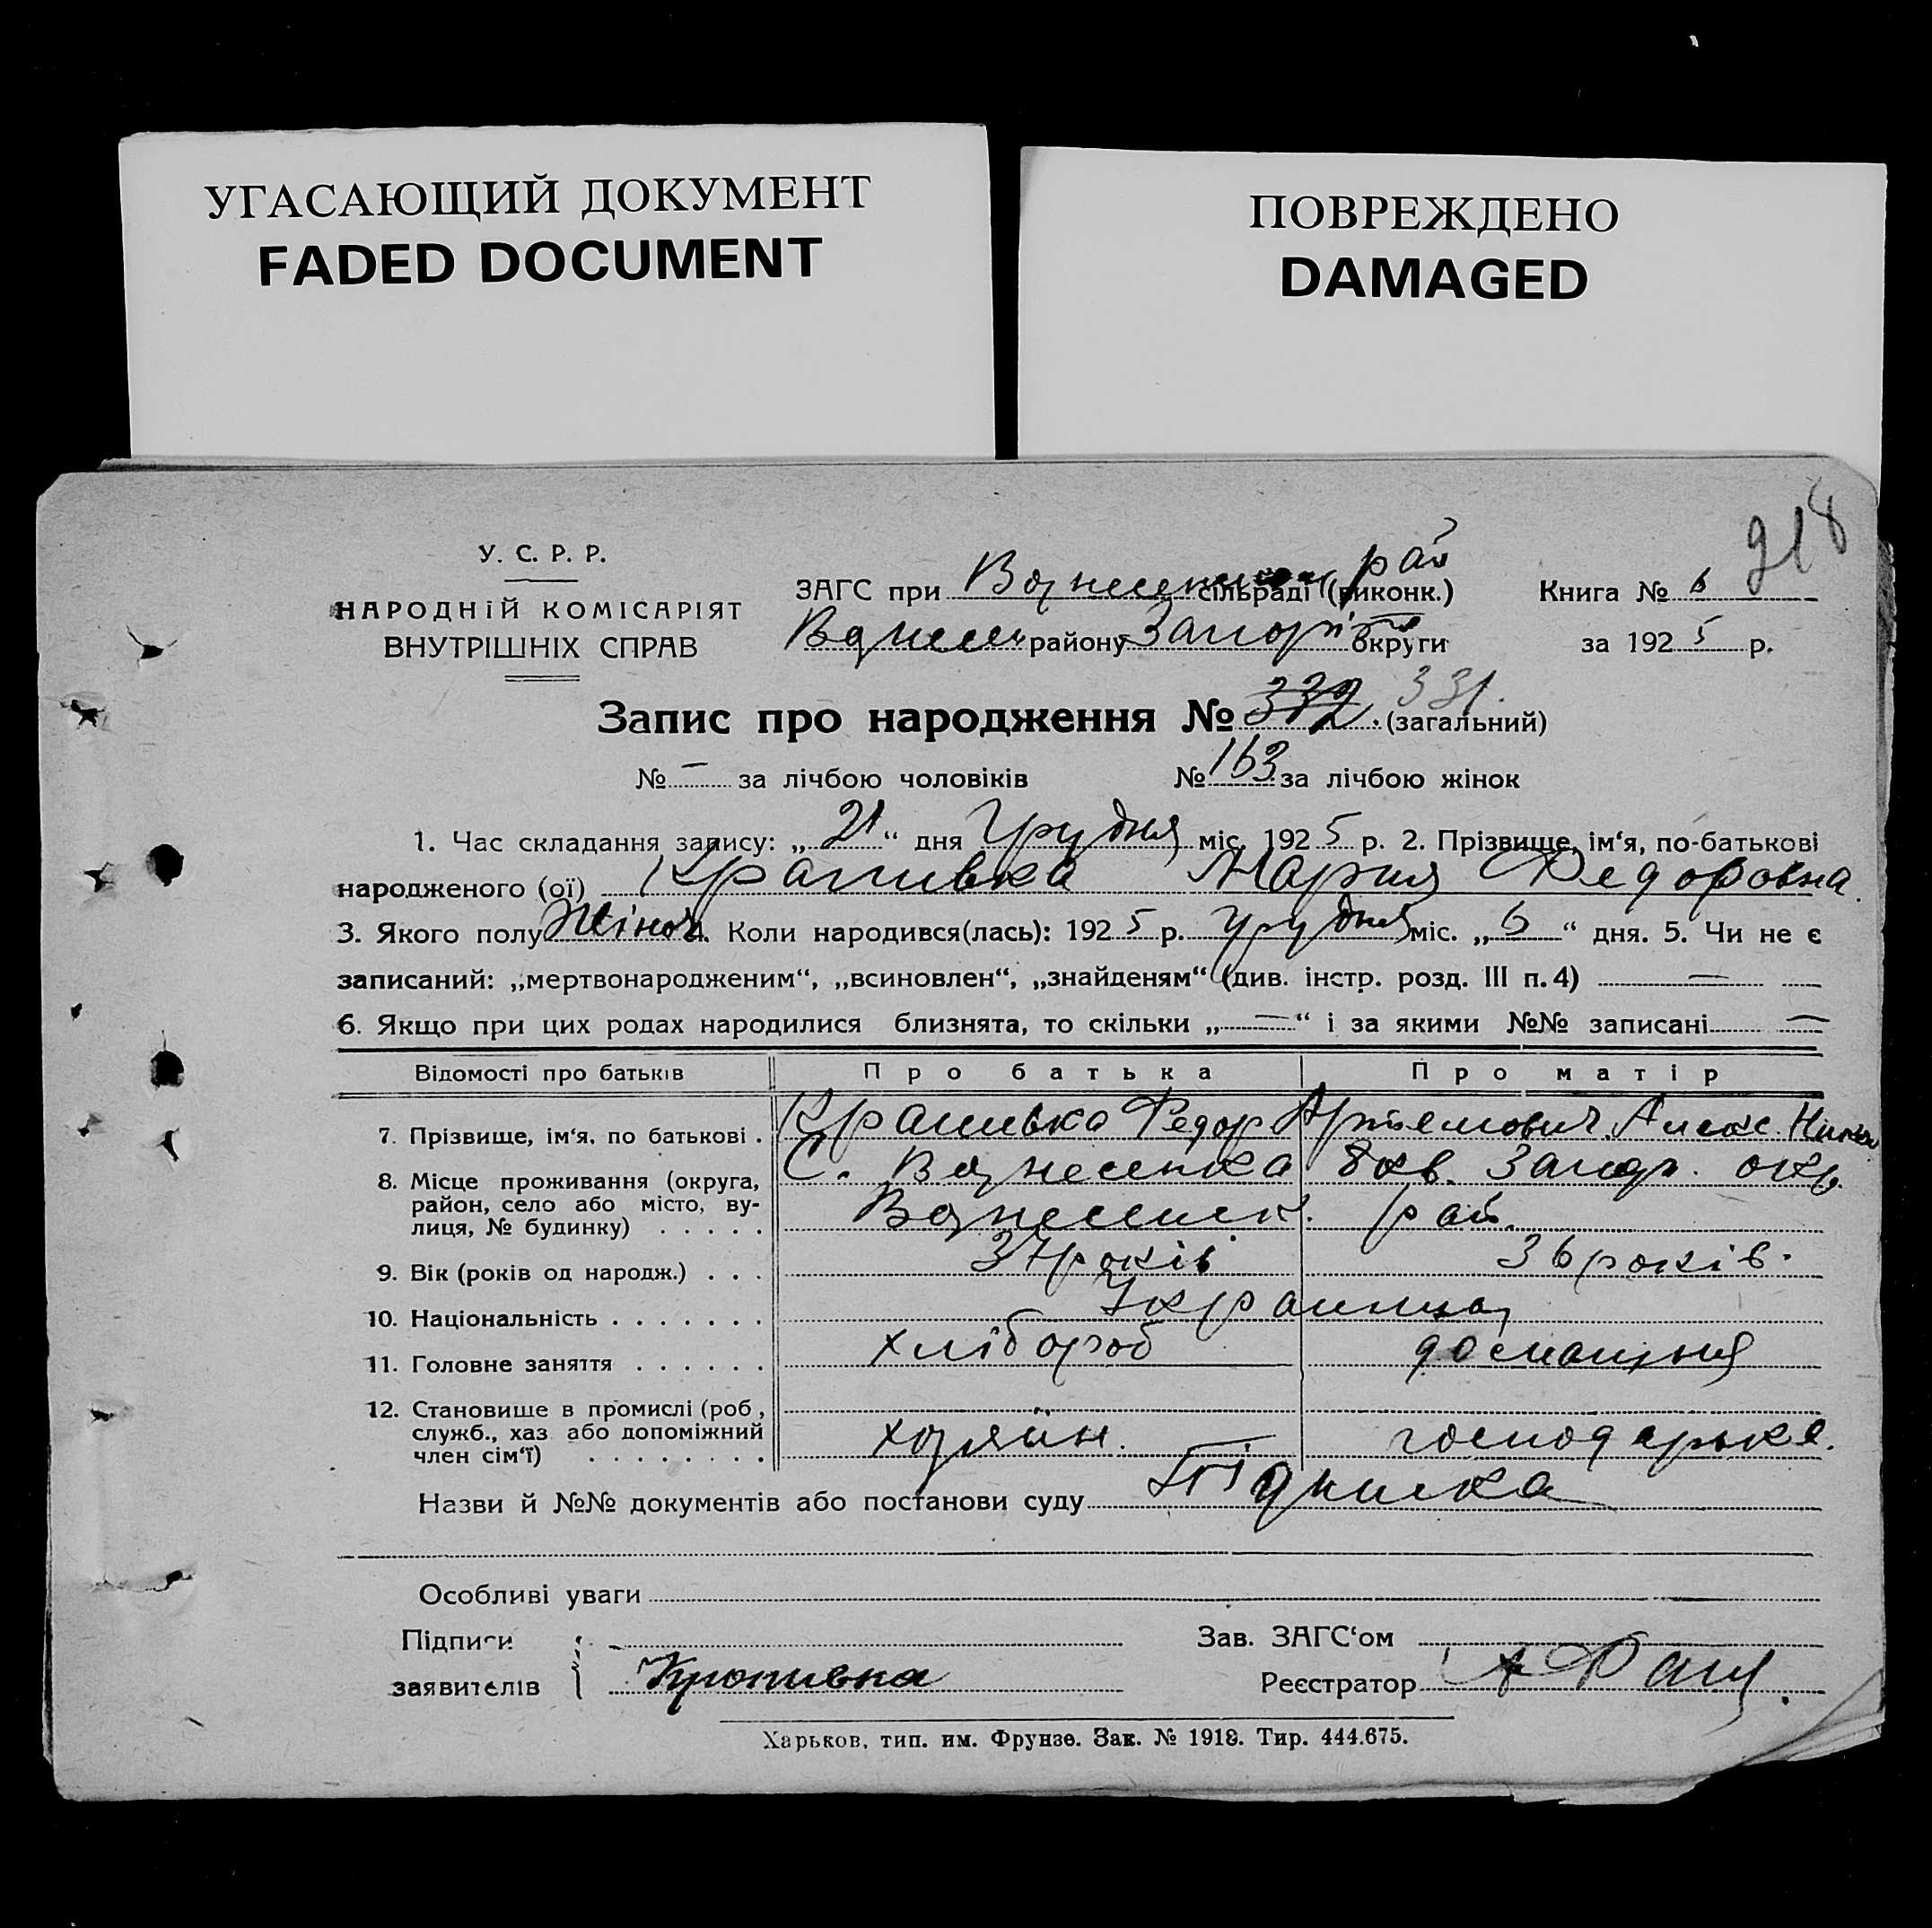 УГАСАЮЩИЙ ДОКУМЕНТ
FADED DOCUMENT
ПОВРЕЖДЕНО
DAMAGED
918
У. С. Р. Р.
НАРОДНІЙ КОМІСАРІЯТ
ВНУТРІШНІХ СПРАВ
ЗАГС при Вознесенском рай сільраді (виконк.)
Вознесен району Запоріж округи
Книга № 6
за 1925 р.
Запис про народження № 332. 331. (загальний)
№ — за лічбою чоловіків № 163 за лічбою жінок
1. Час складання запису: „21“ дня Грудня міс. 1925 р. 2. Прізвище, ім‘я, по-батькові
народженого (ої) Крапивка Мария Федоровна
3. Якого полу Жіноч. 4. Коли народився(лась): 1925 р. Грудня міс. „6“ дня. 5. Чи не є
записаний: „мертвонародженим“, „всиновлен“, „знайденям“ (див. інстр. розд. III п. 4) —
6. Якщо при цих родах народилися близнята, то скільки „—“ і за якими №№ записані —
Відомості про батьків Про батька Про матір
7. Прізвище, ім‘я, по батькові . Крапивка Федор Артемович. Алекс. Никол
8. Місце проживання (округа, район, село або місто, вулиця, № будинку) . . . . . С. Вознесенка 8 кв. Запор. окр.
Вознесенск. рай.
9. Вік (років од народж.) . . . 37 років 36 років.
10. Національність . . . . . . . Украинцы
11. Головне заняття . . . . . . хлібороб домашня
12. Становище в промислі (роб., служб., хаз. або допоміжний член сім‘ї) . . . . . . . . хозяїн. господарька.
Назви й №№ документів або постанови суду Підписка
Особливі уваги
Підписи
заявителів Кропивка
Зав. ЗАГС‘ом
Реєстратор
Харьков, тип. им. Фрунзе. Зак. № 1918. Тир. 444.675.